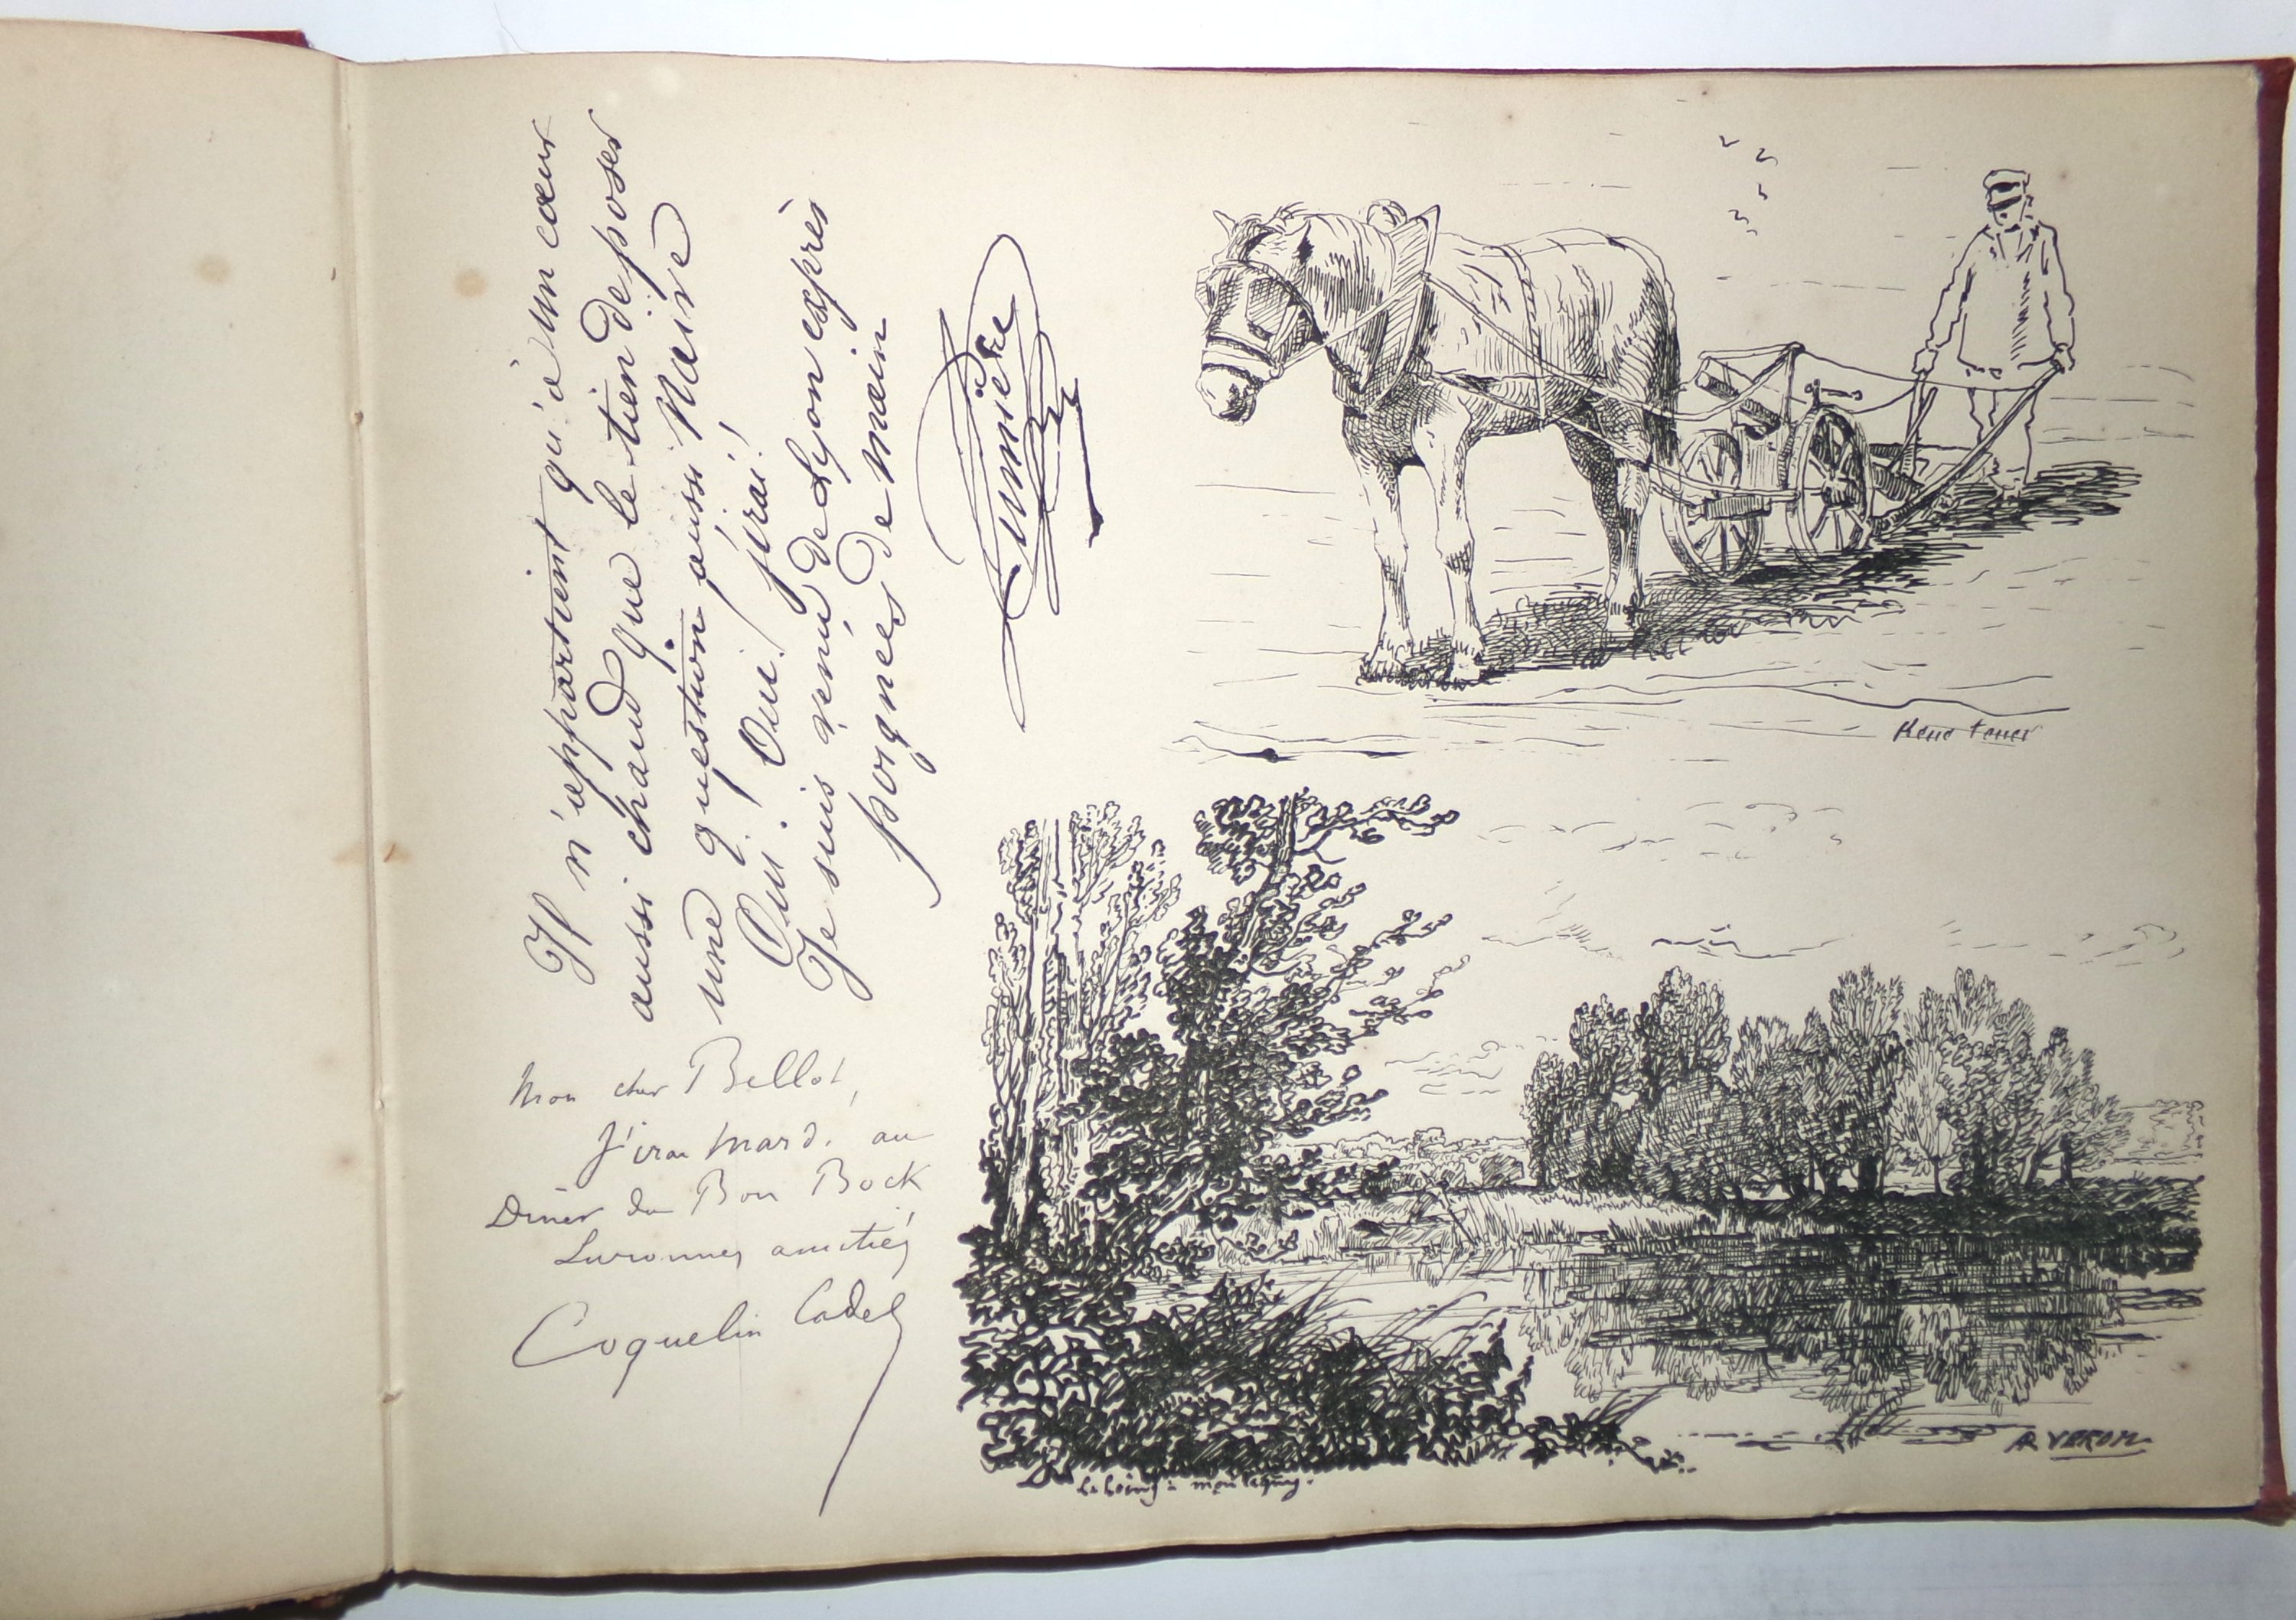 Il n'appartient qu'à un cœur
aussi chaud que le tien de poser
une question aussi Naïve
Oui! Oui! j'irai!
Je suis venu de Lyon exprès
poignées de main
Lumière
Mon cher Bellot,
J'irai mardi au
Dîner du Bon Bock
amitiés
Coquelin Cadet
René
Le Loing à Montigny.
AR VERON